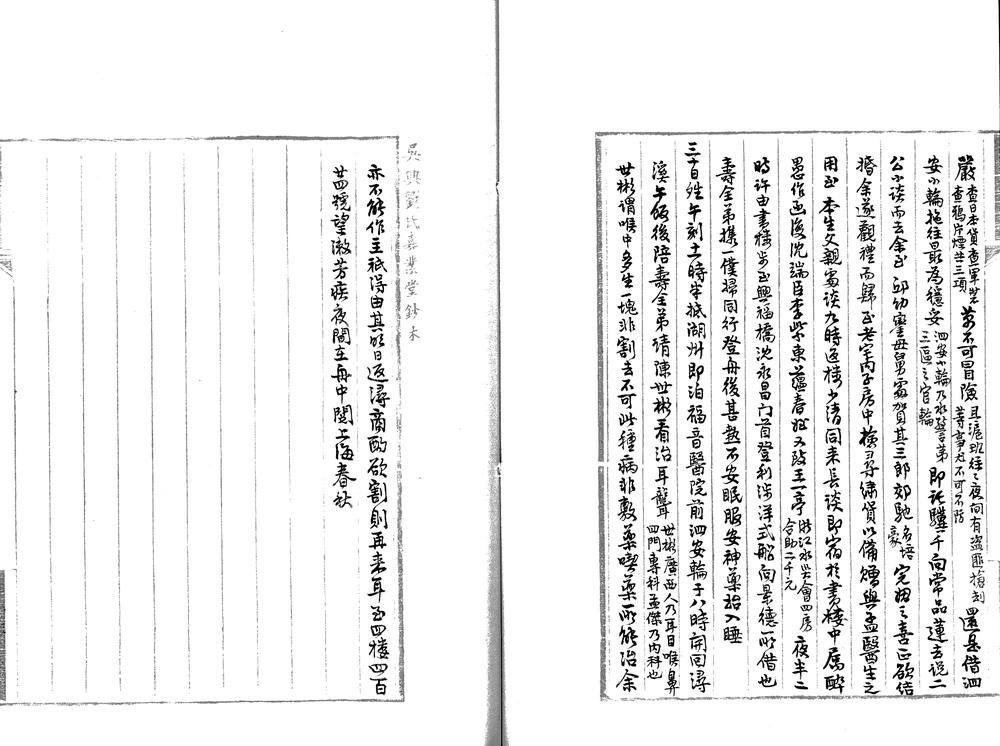 嚴查日本貨查軍裝查鴉片煙共三項萬不可冒險且滬班往之夜間有盜匪搶刦等事尤不可不防還是借泗
安小輪拖往最為穩妥泗安小輪乃水警第三區之官輪即託驥千向常品蓮去說二
公小談而去余至邱幼蜜母舅處賀其三郎郊馳名培豪完姻之喜正欲結
婚余遂觀禮而歸至老宅內子房中檢尋繡貨以備贈與孟醫生之
用至本生父親處談九時返樓少清同來長談即宿於書樓中屬醉
愚作函復沈端臣李紫東蘊春姪又致王一亭浙江水災會四房合助二千元夜半二
時許由書樓步至興福橋沈永昌門首登利涉洋式船向景德所借也
壽全弟攜一僕婦同行登舟後甚熱不安眠服安神藥始入睡
三十日姓午刻十一時半抵湖州即泊福音醫院前泗安輪于八時開回潯
溪午飯後陪壽全弟請陳世彬看治耳聾世彬廣西人乃耳目喉鼻四門專科孟傑乃內科也
世彬謂喉中多生一塊非割去不可此種病非敷藥喫藥所能治余
吳興劉氏嘉業堂鈔本
亦不能作主祇得由其明日返潯商酌欲割則再來耳至四樓四百
廿四號望漱芳疾夜間在舟中閱上海春秋